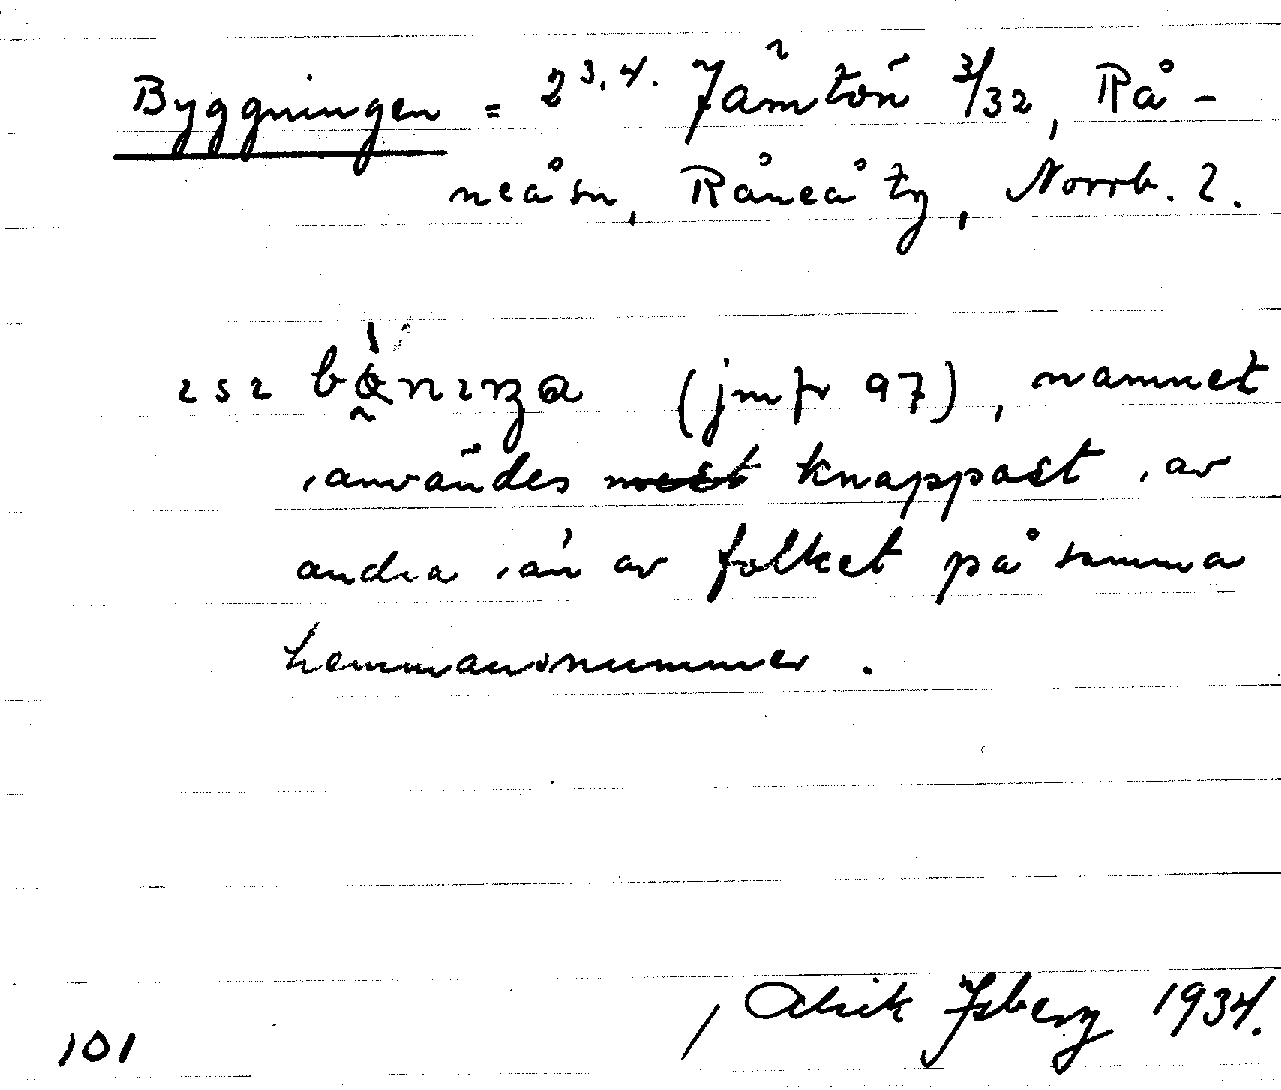 Byggningen = 2 3,4. Jämtön 3/32, Rå-
neå sn, Råneå tg, Norrb. l.
(jmfr 97), namnet
användes knappast av
andra än av folket på samma
hemmansnummer.
Isberg 1934.
101